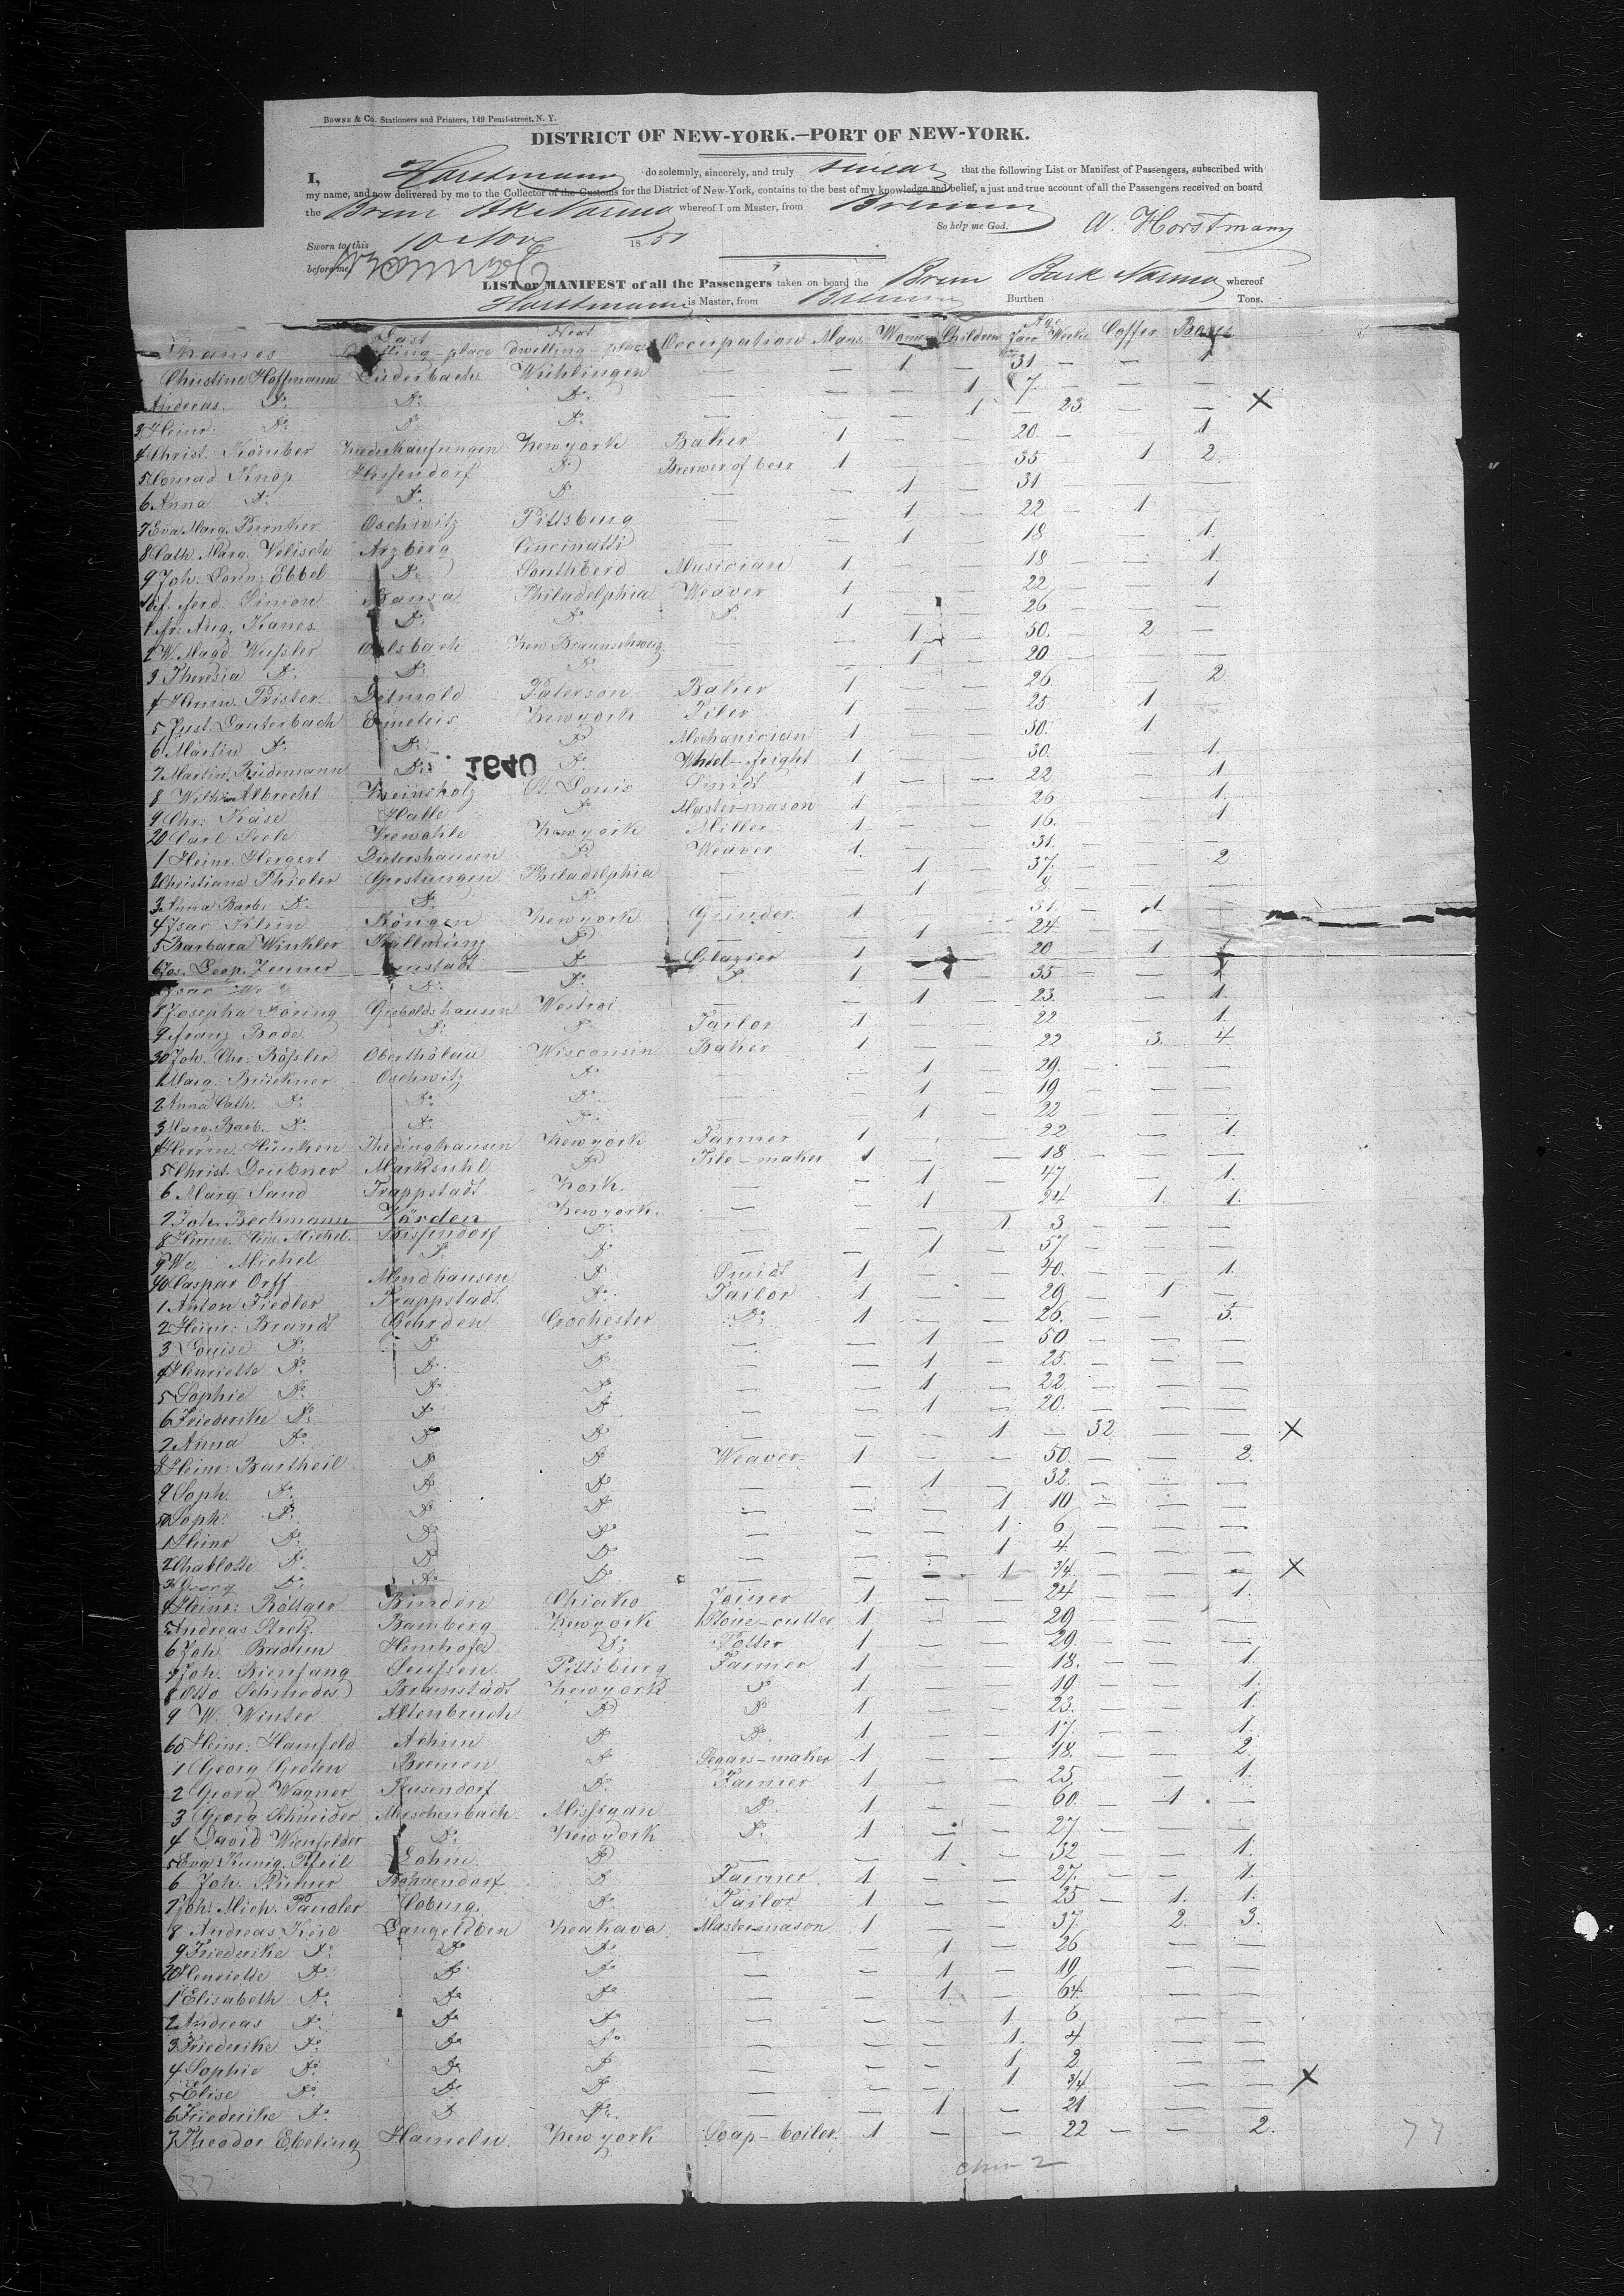 BOWNE & CO. Stationers and Printers, 149 Pearl-street, N. Y.
DISTRICT OF NEW-YORK.—PORT OF NEW-YORK.
I, Horstmann do solemnly, sincerely, and truly swear that the following List or Manifest of Passengers, subscribed with
my name, and now delivered by me to the Collector of the Customs for the District of New-York, contains to the best of my knowledge and belief, a just and true account of all the Passengers received on board
the Brem Bk Norma whereof I am Master, from Bremen
So help me God. W. Horstmann
Sworn to this 10 Nov 1851
before me,
LIST or MANIFEST of all the Passengers taken on board the Brem Bark Norma whereof
Horstmann is Master, from Bremen Burthen Tons.
Names Last dwelling-place Next dwelling-place Occupation Mans Women Children Age Years Weeks Coffer Boxes
Christine Hoffmann Lüderbach Wühlingen — — 1 — 31 — — 1
Andreas Do Do Do — — — 1 7 — — —
3 Heinr: Do Do Do — — — 1 — 23 — — X
4 Christ. Romber Niederkaufungen Newyork Baker 1 — — 20 — — 1
5 Conrad Knop Hessendorf Do Brewer of beer 1 — — 35 1 2
6 Anna Do Do Do — — 1 — 31 — — —
7 Eva Marg. Purnker Oschwitz Pittsburg — — 1 — 22 — 1
8 Cath. Marg. Velisch Arzberg Cincinatti — — 1 — 18 — — 1
9 Joh. Lorenz Ebbel Do Southberd Musician 1 — — 18 — — 1
Ferd. Simon Philadelphia Weaver 1 — — 22 — — 1
1 Fr: Aug. Kanes Do Do Do 1 — — 26 — — —
2 W. Magd. Weisler New Braunschweig — — 1 — 50 — 2 —
3 Theresia Do Do Do — — 1 — 20 — — —
4 Herm. Prister Detmold Paterson Baker 1 — — 26 — — 2
5 Just. Lauterbach Newyork Tiler 1 — — 25 1 —
6 Martin Do Do Do Mechanician 1 — — 30 1
7 Martin Rüdemann Do Do Wheel-fright 1 — — 30 — 1
1640
8 Wilh. Albrecht St. Louis Smidt 1 — — 22 — 1
9 Chr: Käse Halle Do Master-mason 1 — — 26 — 1
20 Carl Seele Newyork Miller 1 — — 16 — 1
1 Heinr. Hergert Dietershausen Do Weaver 1 — — 31
2 Christiane Thieler Gerstungen Philadelphia — — 1 — 37 — — 2
3 Anna Barb. Do Do Do — — 1 — 8 — — —
4 Isac Klein Newyork Grinder 1 — — 31 — 1 —
5 Barbara Winkler Do — — 1 — 24
6 Jos. Leop. Zenner Do Glazier 1 — — 20 — 1 1
Isac Do Do Do 1 — — 35 — — 1
8 Josepha Döring Gieboldshausen Westroi — — 1 — 23 — 1
9 Franz Bode Do Do Tailor 1 — — 22 — 1
30 Joh. Chr: Rößler Oberthölau Wisconsin Baker 1 — — 22 3 4
1 Marg. Brückner Oschwitz Do — — 1 — 29 — — —
2 Anna Cath. Do Do Do — — 1 — 19 — —
3 Marg. Barb. Do Do Do — — 1 — 22 — —
4 Herrm. Hünken Thedinghausen Newyork Farmer 1 — — 22 — 1
5 Christ. Deubner Marksuhl Do Tile-maker 1 — — 18 — — —
6 Marg. Sand Trappstadt York — — 1 — 47 — 1
7 Joh. Beckmann Vörden Newyork — — 1 — 24 1 1
8 Herm. Hein. Michel Bissendorf Do — — — 1 3 — — —
9 We. Michel Do Do — — 1 — 57 — — —
40 Caspar Orff Mendhausen Do Smidt 1 — — 40 — — 1
1 Anton Fiedler Trappstadt Do Tailor 1 — — 29 — 1 —
2 Heinr: Brandt Gehrden Crochester Do 1 — — 26 — — 5
3 Louise Do Do Do — — 1 — 50 — — —
4 Henriette Do Do Do — — 1 — 25 — — —
5 Sophie Do Do Do — — 1 — 22 — — —
6 Friederike Do Do Do — — 1 — 20 — — —
7 Anna Do Do Do — — — 1 — 32 — — X
8 Heinr: Bartheil Do Do Weaver 1 — — 50 — — 2
9 Soph. Do Do Do — — 1 — 32 — — —
50 Soph: Do Do Do — — — 1 10 — — —
1 Heinr Do Do Do — — — 1 6 — — —
2 Charlotte Do Do Do — — — 1 4 — — —
3 Georg Do Do Do — — — 1 3/4 — — — X
4 Heinr: Röttger Binden Chiako Joiner 1 — — 24 — — 1
5 Andreas Stretz Bamberg Newyork Stone-cutter 1 — — 29 — — —
6 Joh. Badum Do Potter 1 — — 29 — — —
7 Joh. Bienfang Seussen Pittsburg Farmer 1 — — 18 — — 1
8 Otto Schmedes Bramstadt Newyork Do 1 — — 19 — — 1
9 W. Winter Altenbruch Do Do 1 — — 23 — — 1
60 Heinr: Hamfeld Achim Do Do 1 — — 17 — — 1
1 Georg Groten Bremen Do Segars-maker 1 — — 18 — — 2
2 Georg Wagner Reusendorf Do Farmer 1 — — 25 — 1
3 Georg Schneider Merschenbach Missigan Do 1 — — 60 — 1 —
4 David Wienfelder Do Newyork Do 1 — — 27 — — —
5 Eva Kunig. Pfeil Lohm Do — — 1 — 32 — 1
6 Joh. Do Farmer 1 — — 27 — 1
7 Joh. Mich. Paudler Coburg Do Tailor 1 — — 25 — 1 1
8 Andreas Keil Langeleben Neakava Master-mason 1 — — 37 2 3
9 Friederike Do Do Do — — 1 — 26 — —
70 Henriette Do Do Do — — 1 — 19 — —
1 Elisabeth Do Do Do — — 1 — 64 — —
2 Andreas Do Do Do — — — 1 6 — —
3 Friederike Do Do Do — — — 1 4 — —
4 Sophie Do Do Do — — — 1 2 — —
5 Elise Do Do Do — — — 1 3/4 — — X
6 Friederike Do Do Do — — 1 — 21 — —
7 Theodor Ebeling Hameln Newyork Soap-boiler 1 — — 22 — — 2
77